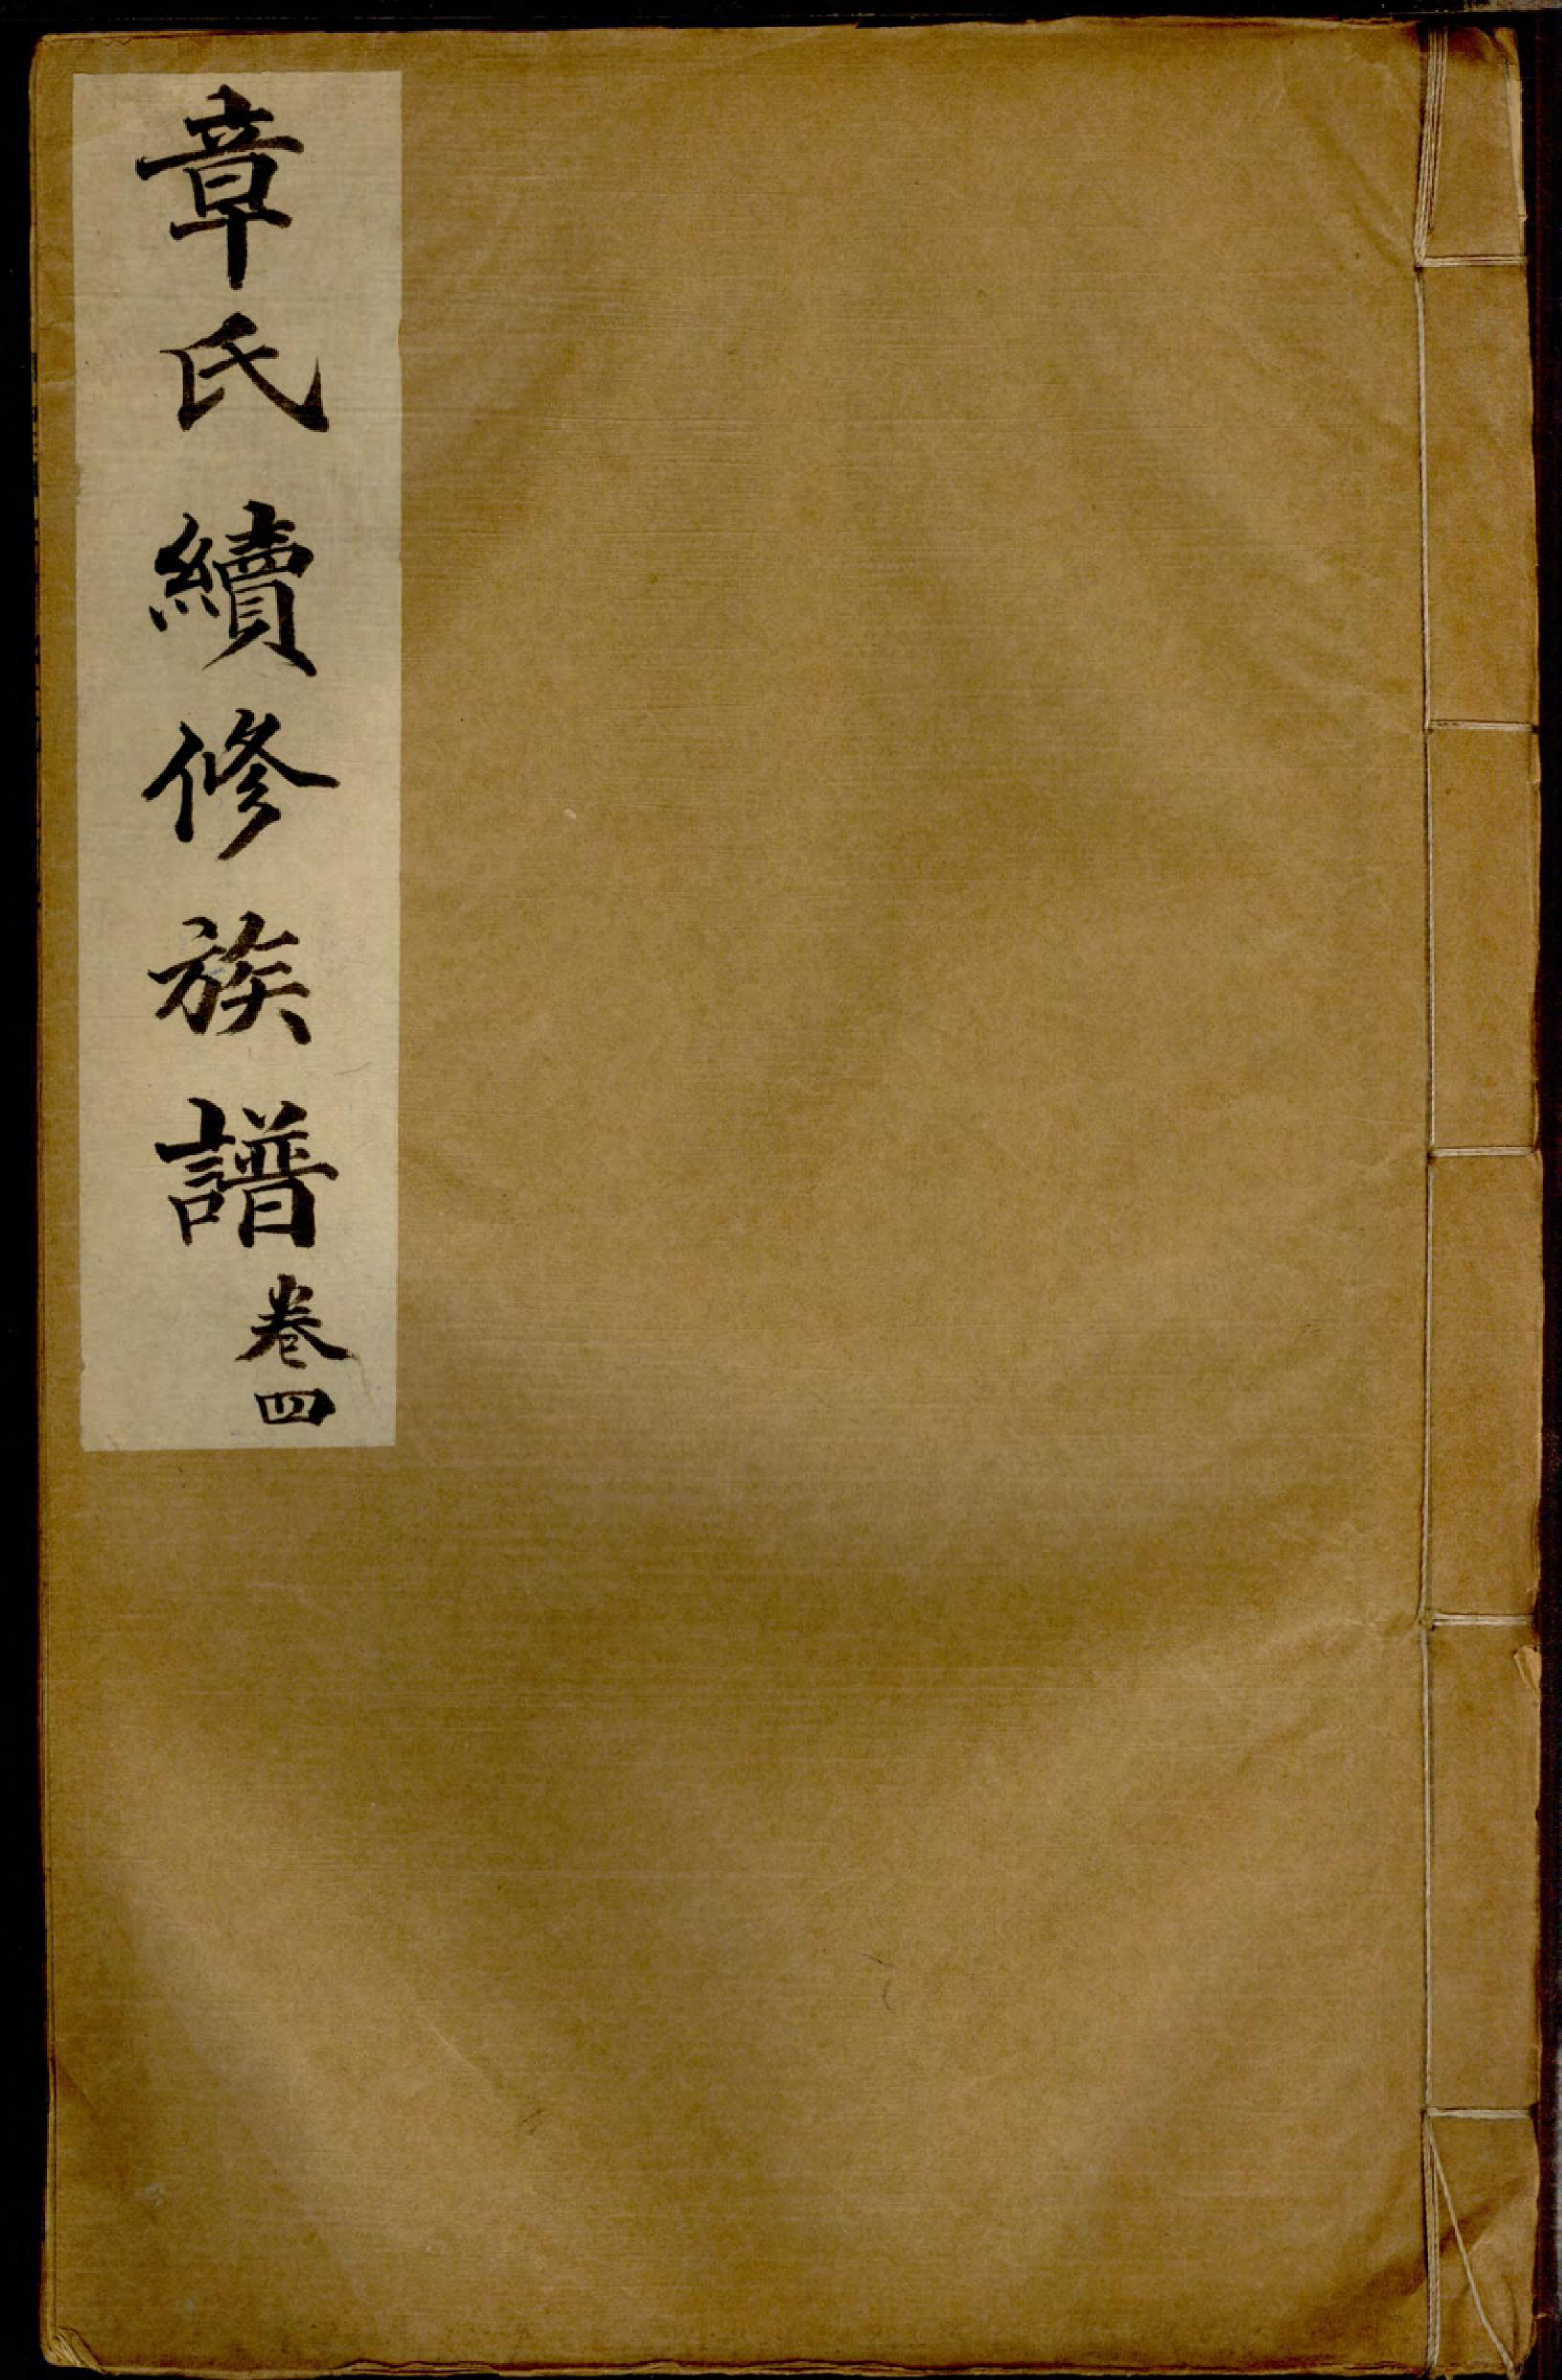 章氏續修族譜
卷四